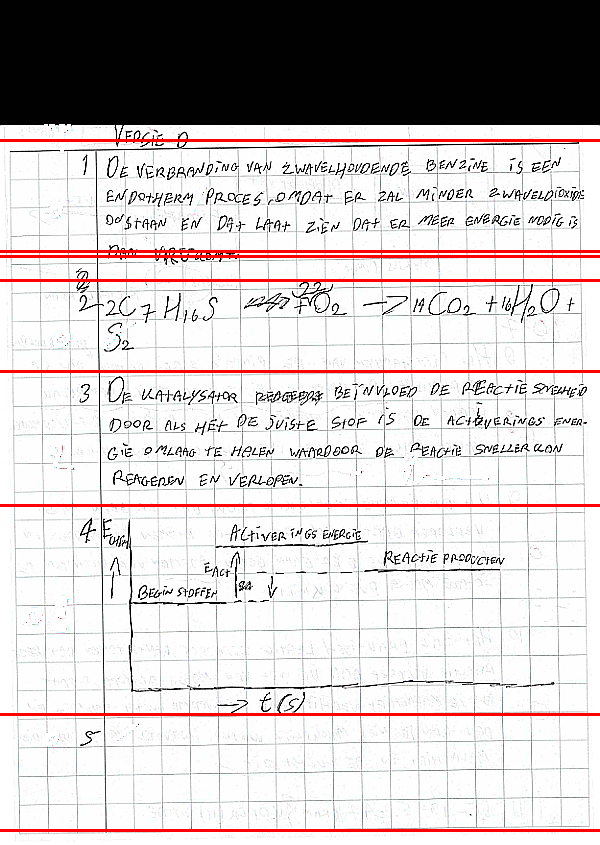 VERSIE D
1 DE VERBRANDING VAN ZWAVELHOUDENDE BENZINE IS EEN
ENDOTHERM PROCES, OMDAT ER ZAL MINDER ZWAVELDIOXIDE
ONSTAAN EN DAT LAAT ZIEN DAT ER MEER ENERGIE NODIG IS
DAN
2 2C7H16S 22O2 → 14CO2 + 16H2O +
S2
3 DE KATALYSATOR BEÏNVLOED DE REACTIE SNELHEID
DOOR ALS HET DE JUISTE STOF IS DE ACTIVERINGS ENER-
GIE OMLAAG TE HALEN WAARDOOR DE REACTIE SNELLER KAN
REAGEREN EN VERLOPEN.
4 ACTIVERINGS ENERGIE
EACT
REACTIE PRODUCTEN
BEGIN STOFFEN
→ t(s)
5